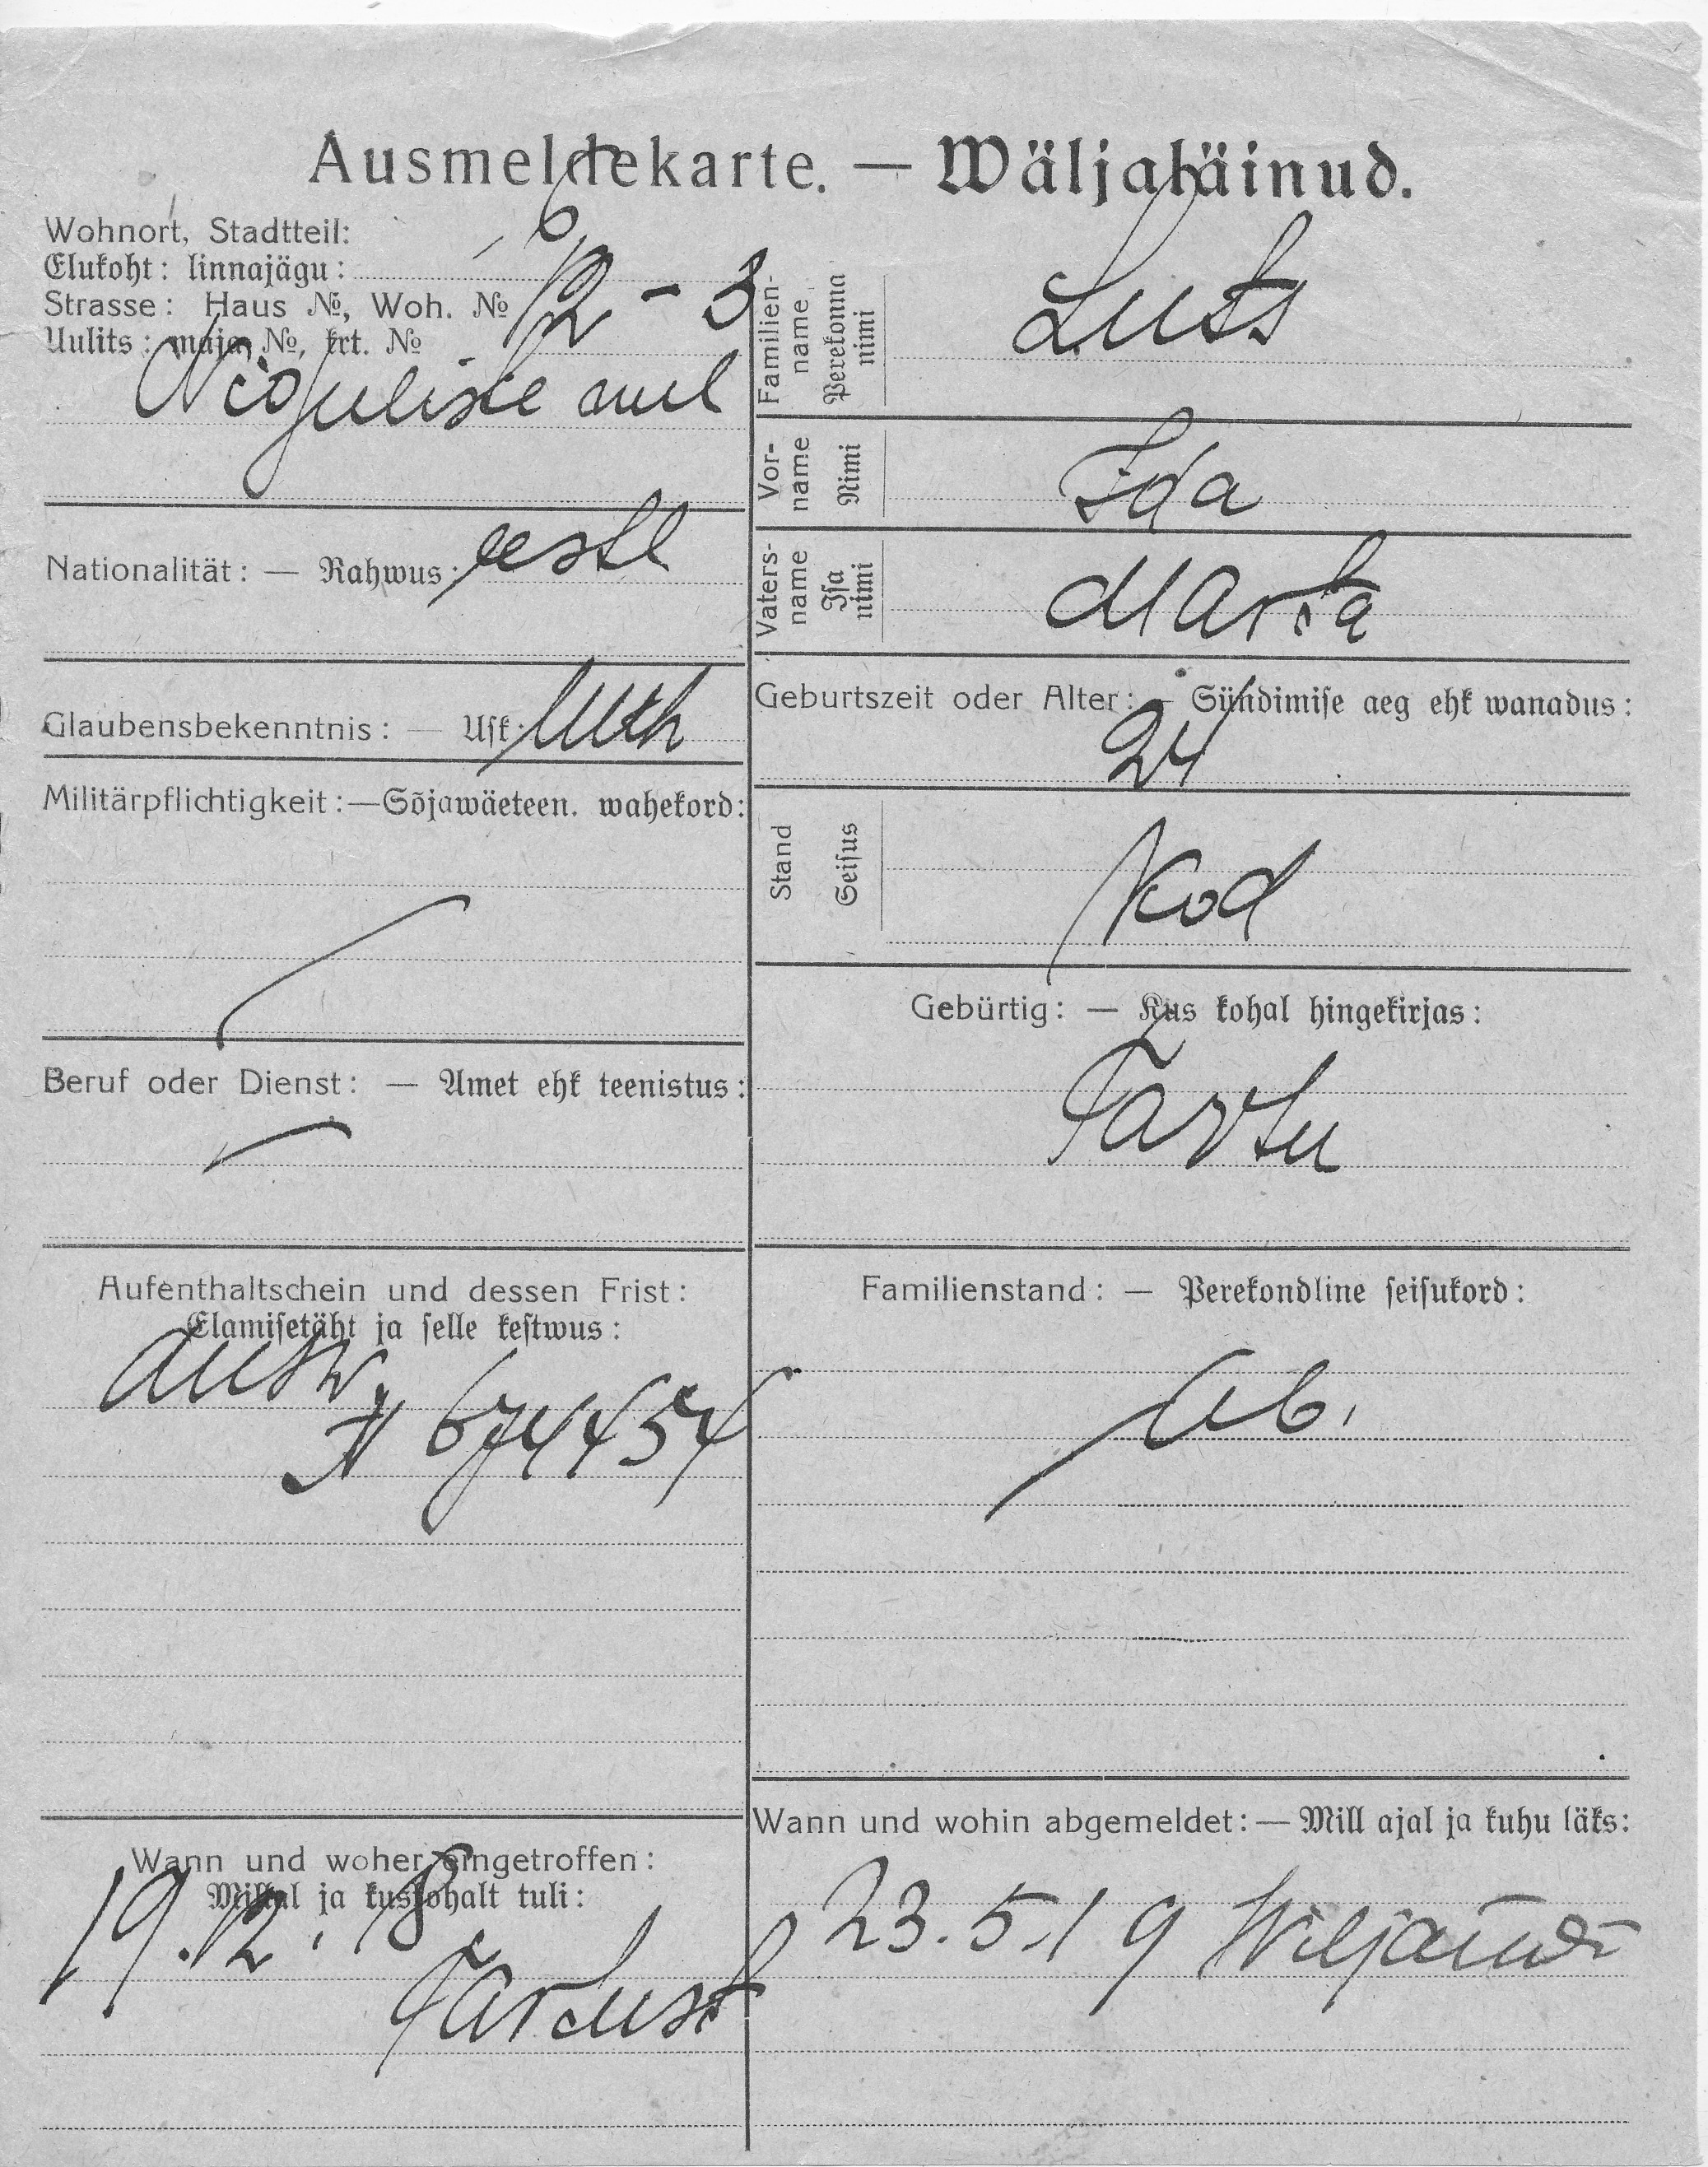 Ausmeldekarte. — Wäljaläinud.
Wohnort, Stadtteil:
Elukoht: linnajägu:
Strasse: Haus №, Woh. № 12 - 3
Uulits: maja №, krt. №
Niguliste uul
Nationalität: — Rahwus: eestl
Glaubensbekenntnis: — Usk: luth
Militärpflichtigkeit: — Sõjawäeteen. wahekord:
Beruf oder Dienst: — Amet ehk teenistus:
Aufenthaltschein und dessen Frist:
Elamisetäht ja selle kestwus:
Ausw.
N 674454
Wann und woher eingetroffen:
Millal ja kust kohalt tuli:
19.12.18
Tartust
Familien-name Perekonna nimi
Luts
Vor-name Nimi
Ida
Vaters-name Isa nimi
Marta
Geburtszeit oder Alter: — Sündimise aeg ehk wanadus:
24
Stand Seisus
Kod
Gebürtig: — Kus kohal hingekirjas:
Tartu
Familienstand: — Perekondline seisukord:
ab.
Wann und wohin abgemeldet: — Mill ajal ja kuhu läks:
23.5.19 Wiljandi